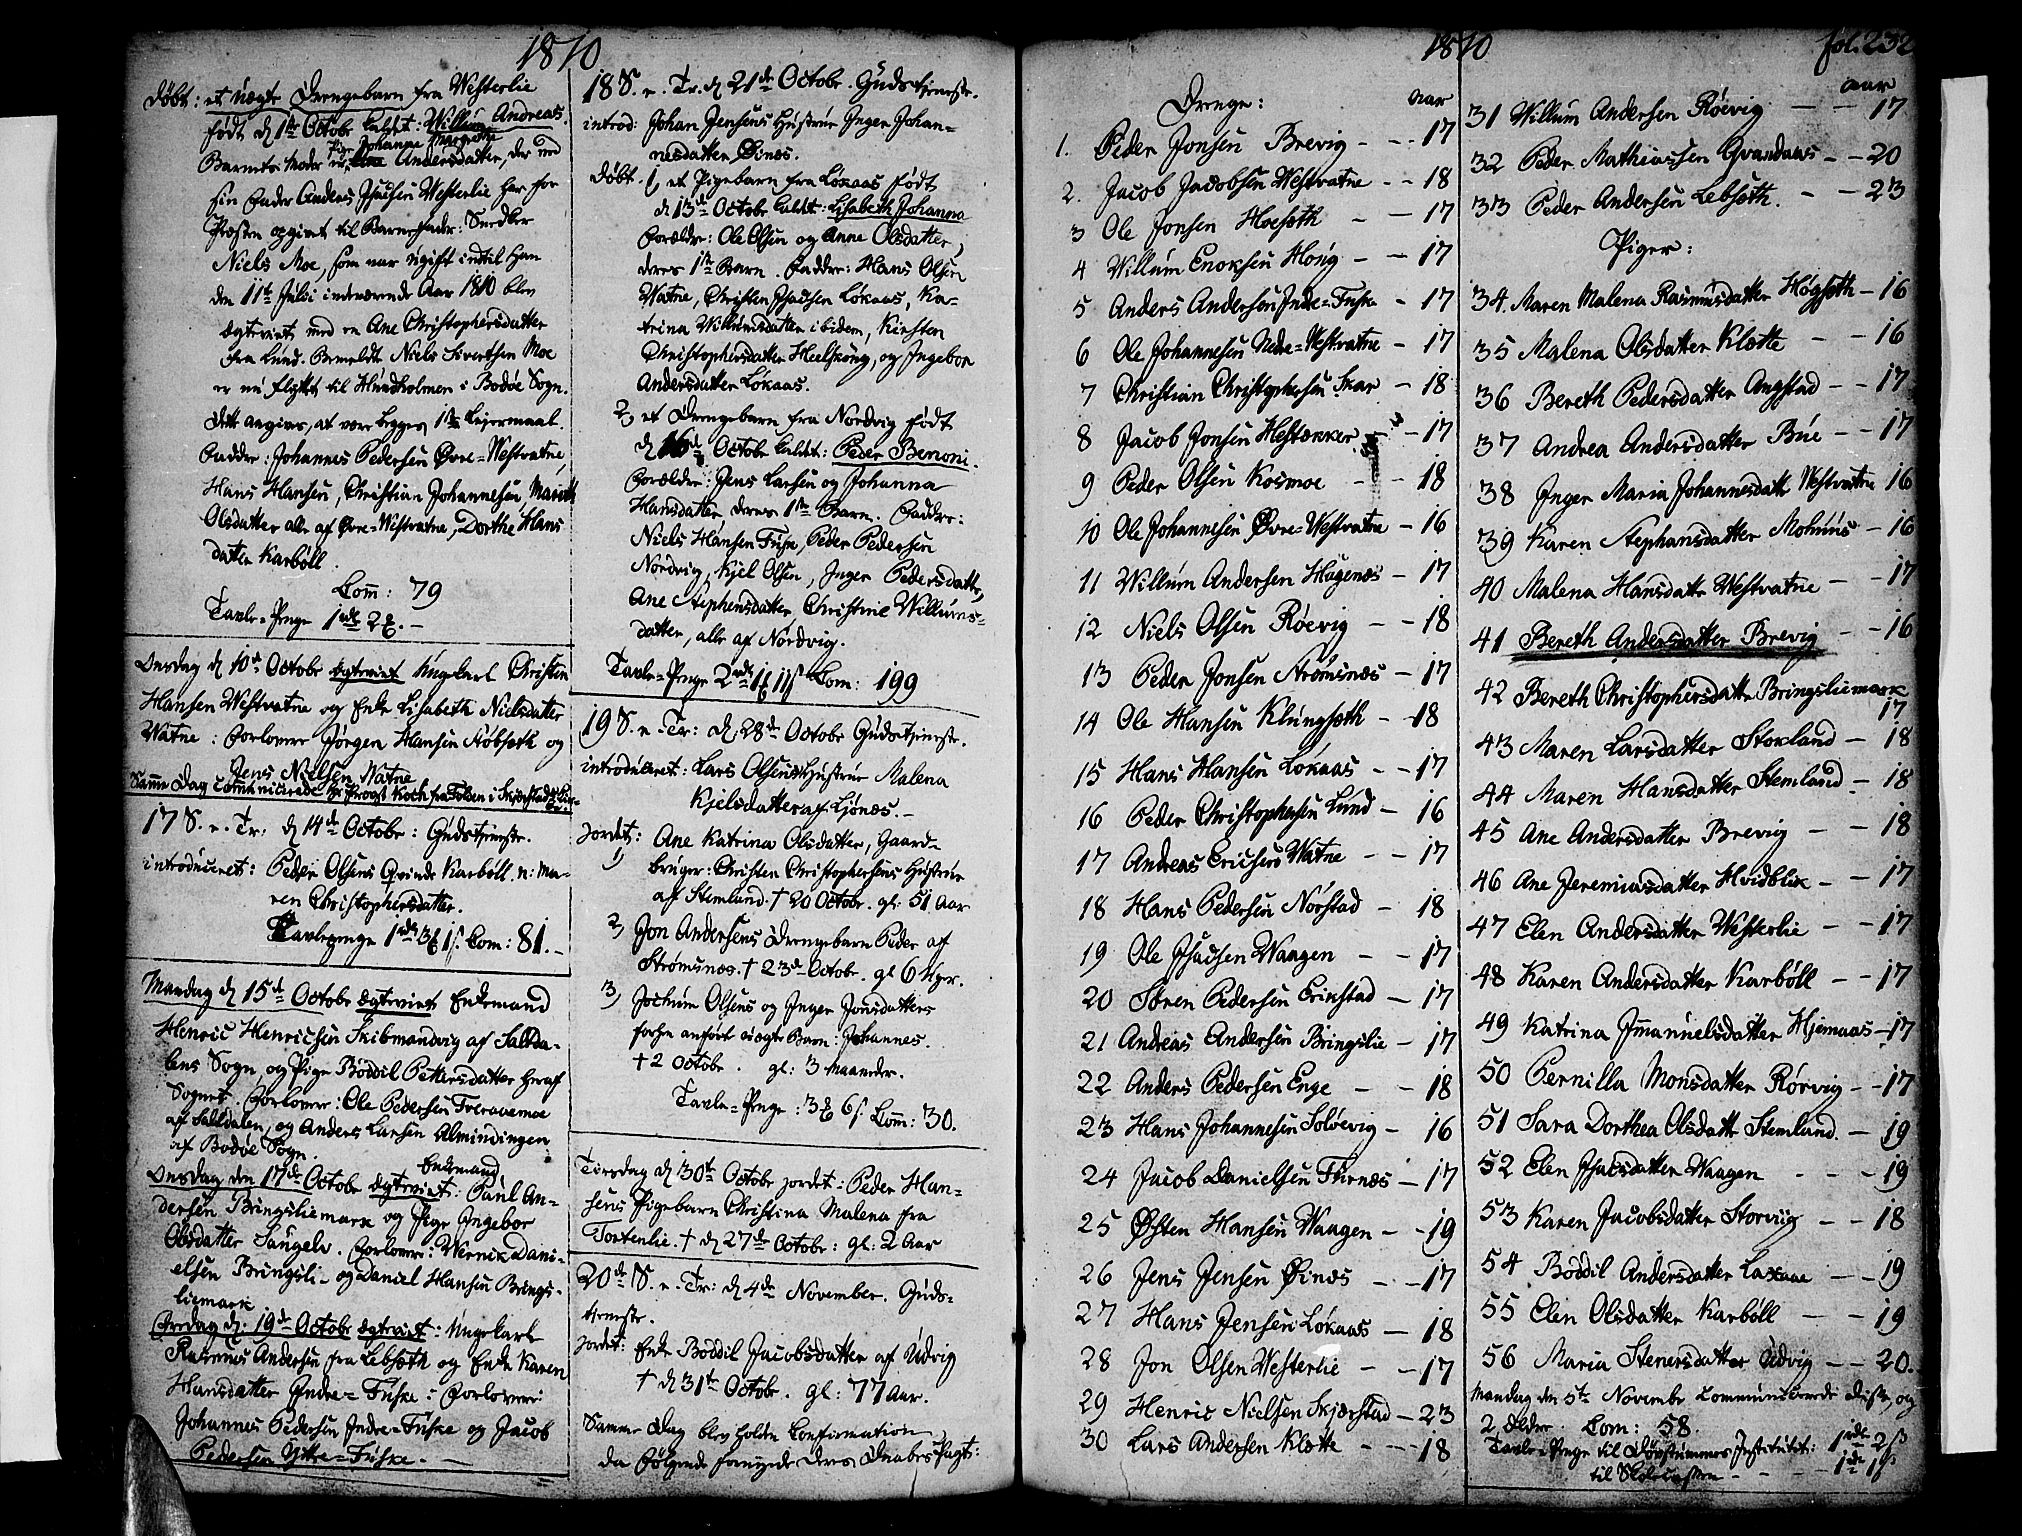 1810
Døbt: et uægte Drengebarn fra Westerlie
født d 1ste Octobr kaldet: Willum Andreas.
Barnets Moder er Pige Johanne Margrethe Andersdatter, der ved
sin Fader Anders Isacsen Westerlie har for
Præsten opgivet til Barnefader: Snedker
Niels Moe, som var ugift indtil han
den 11te Julii indeværende Aar 1810 blev
ægteviet med en Ane Christophersdatter
fra Lund. Bemeldte Niels Sivertsen Moe
er nu flyttet til Hundholmen i Bodøe Sogn.
Dette angives, at være begges 1ste Leiermaal.
Faddre: Johannes Pedersen Øvre=Westvatne,
Hans Hansen, Christian Johannesen, Mareth
Olsdatter alle af Øvre=Westvatne, Dorthe Hans
datter Karbøll.
Com: 79
Tavle=Penge 1rdl 2ß.-
Onsdag d 10de Octobr ægteviet Ungekarl Christen
Hansen Westvatne og Enke Lisabeth Nielsdatter
Watne: Forlover Jørgen Hansen Købseth og
Jens Nielsen Watne
Samme Dag communicerede Hr Provst Koch fra Folden i Skjerstad Kir=
17 S. e. Tr: d 14de Octobr: Gudstjeneste.
introduceret: Peder Olsens Qvinde Karbøll n: Ma=
ren Christophersdatter.
Tavlepenge 1rdl 3ß 1s. Com: 81.-
Mandag d 15de Octobr ægteviet Enkemand
Henric Henricsen Skibmandvig af Saltda=
lens Sogn, og Pige Boddil Pettersdatter heraf
Sognet. Forlover: Ole Pedersen
af Saltdalen, og Anders Larsen Almindingen
af Bodøe Sogn.
Onsdag den 17de Octobr ægteviet: Enkemand Paul An=
dersen Bringsliemark og Pige Ingebor
Olsdatter Laugelv. Forlover: Wernik Dani=
elsen Bringsli- og Daniel Hansen Brings=
liemark
Fredag d: 19de Octobr ægteviet: Ungekarl
Rasmus Andersen fra Lebseth og Enke Karen
Hansdatter Indre=Fuske: Forlovere:
Johannes Pedersen Indre=Fuske og Jacob
Pedersen Yttre=Fuske.
18 S. e. Tr. d 21de Octobr. Gudstjeneste.
introd: Johan Jensens Hustrue Inger Johan=
nesdatter Øinæs.
Døbt. 1, et Pigebarn fra Løkaas født
d 13de Octobr kaldet: Lisabeth Johanna
Forældre: Ole Olsen og Anne Olsdatter,
deres 1ste Barn. Faddre: Hans Olsen
Watne, Christen Isacsen Løkaas, Ka=
trina Willumsdatter ibidem, Kirsten
Christophersdatter Heelskong, og Ingebor
Andersdatter Løkaas.
2, et Drengebarn fra Nordvig født
d 16de Octobr kaldet: Peder Benoni.
Forældre: Jens Larsen og Johanna
Hansdatter deres 1ste Barn. Faddre:
Niels Hansen Fuske, Peder Pedersen
Nordvig, Kjel Olsen, Inger Pedersdatter,
Ane Stephensdatter, Christine Willums=
datter, alle af Nordvig.
Tavle=Penge 2rdl 1ß 11s Com: 199
19 S. e. Tr: d, 28de Octobr Gudstjeneste.
introduceret: Lars Olsens Hustrue Malena
Kjelsdatter af Ljønæs.-
Jordet: Ane Katrina Olsdatter, Gaard=
1) bruger: Christen Christophersens Hustrue
af Stemland. † 20 Octobr. gl: 51 Aar
2, Jon Andersens Drengebarn Peder af
Strømsnæs. † 23de Octobr. gl 6 Uger.
3, Jochum Olsens og Inger Jonsdatters
forhen anført uægte Barn: Johannes.
† 2 Octobr. gl: 3 Maander.
Tavle=Penge: 3ß 6s. Com: 30.
Tirsdag d 30te Octobr jordet: Peder Han=
sens Pigebarn Christina Malena fra
Tortenlie. † d 27de Octobr: gl: 2 Aar
20de S. e. Tr: d 4de November. Guds=
tjeneste.
Jordet: Enke Boddil Jacobsdatter af Udvig
† d 31te Octobr. gl: 77 Aar.
Samme Dag blev holden Confirmation
da følgende fornyede deres Daabes Pagt:
1810
fol. 232
Drenge: aar
1. Peder Jonsen Brevig - - 17
2. Jacob Jacobsen Westvatne - - 18
3 Ole Jonsen Hoeseth - - 17
4 Willum Enoksen Høug - - 17
5 Anders Andersen Indre=Fuske - 17
6 Ole Johannesen Nedre=Westvatne - 17
7 Christian Christophersen Skar - 18
8 Jacob Jonsen Hestækker - 17
9 Peder Olsen Kosmoe - - 18
10 Ole Johannesen Øvre=Westvatne - 16
11 Willum Andersen Hagenæs - 17
12 Niels Olsen Røevig - - 18
13 Peder Jonsen Strømsnæs - 17
14 Ole Hansen Klungseth - - 18
15 Hans Hansen Løkaas - - 17
16 Peder Christophersen Lund - 16
17 Andreas Ericsen Watne - - 17
18 Hans Pedersen Norstad - 18
19 Ole Isacsen Waagen - - 17
20 Søren Pedersen Erikstad - 17
21 Andreas Andersen Bringslie - 17
22 Anders Pedersen Enge - - 18
23 Hans Johannesen Soløevig - 16
24 Jacob Danielsen Furnæs - 17
25 Østen Hansen Waagen - - 19
26 Jens Jensen Øinæs - - 17
27 Hans Jensen Løkaas - 18
28 Jon Olsen Westerlie - - 17
29 Henric Nielsen Skjærstad - 23
30 Lars Andersen Klætte - - - 18
aar
31 Willum Andersen Røevig - - 17
32 Peder Mathiassen Qvandaas - - 20
33 Peder Andersen Lebseth. - - 23
Piger:
34. Maren Malena Rasmusdatter Høgseth - 16
35 Malena Olsdatter Klætte - - 16
36 Bereth Pedersdatter Angstad - - 17
37 Andrea Andersdatter Bue - - 17
38 Inger Maria Johannesdattr Westvatne 16
39 Karen Stephansdatter Mohuus - 16
40 Malena Hansdattr Westvatne - - 17
41 Bereth Andersdatter Brevig - - 16
42 Bereth Christophersdatter Bringsliemark
17
43 Maren Larsdatter Stokland - 18
44 Maren Hansdatter Stemland - 18
45 Ane Andersdatter Brevig - - 18
46 Ane Jeremiasdatter Hvidblik - - 17
47 Elen Andersdatter Westerlie - - 17
48 Karen Andersdatter Karbøll - - 17
49 Katrina Imanuelsdatter Hjemaas - 17
50 Pernilla Monsdatter Rørvig - - 17
51 Sara Dorthea Olsdattr Stemland. - 19
52 Elen Isacsdatter Waagen - - - 19
53 Karen Jacobsdatter Storviig - - 18
54 Boddil Andersdatter Laxaae - - 19
55 Elen Olsdatter Karbøll - - 19
56 Maria Stenersdatter Udvig - - 20.
Mandag den 5te Novembr communicerede disse og
2 Ældre. Com: 58.
Tavle=Penge til Døvstummes Institutet: 1rdl 2ß
til Skolecassen - - - - 1rdl 1ß